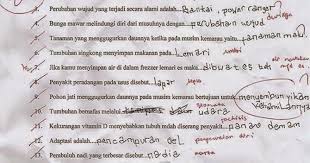 4. Perubahan wujud yang terjadi secara alami adalah...Pantai, power ranger
5. Bunga mawar melindungi diri dari musuhnya dengan...perubahan wujud
durinya
6. Tanaman yang menggugurkan daunnya ketika pada musim kemarau yaitu...tanaman mau
7. Tumbuhan singkong menyimpan makanan pada...Lemari
8. Jika kamu menyimpan air di dalam freezer lemari es maka...dibuat es
9. Penyakit peradangan pada usus disebut...lapar
10. Pohon jati menggugurkan daunnya pada musim kemarau bertujuan untuk...menyembunyikan
stomata
10. Tumbuhan bernafas melalui... udara
11. Kekurangan vitamin D menyebabkan tubuh mudah diserang penyakit...panas demam
12. Adaptasi adalah...pencampuran del penyesuaian diri
13. Pembuluh nadi yang terbesar disebut...nadia aorta